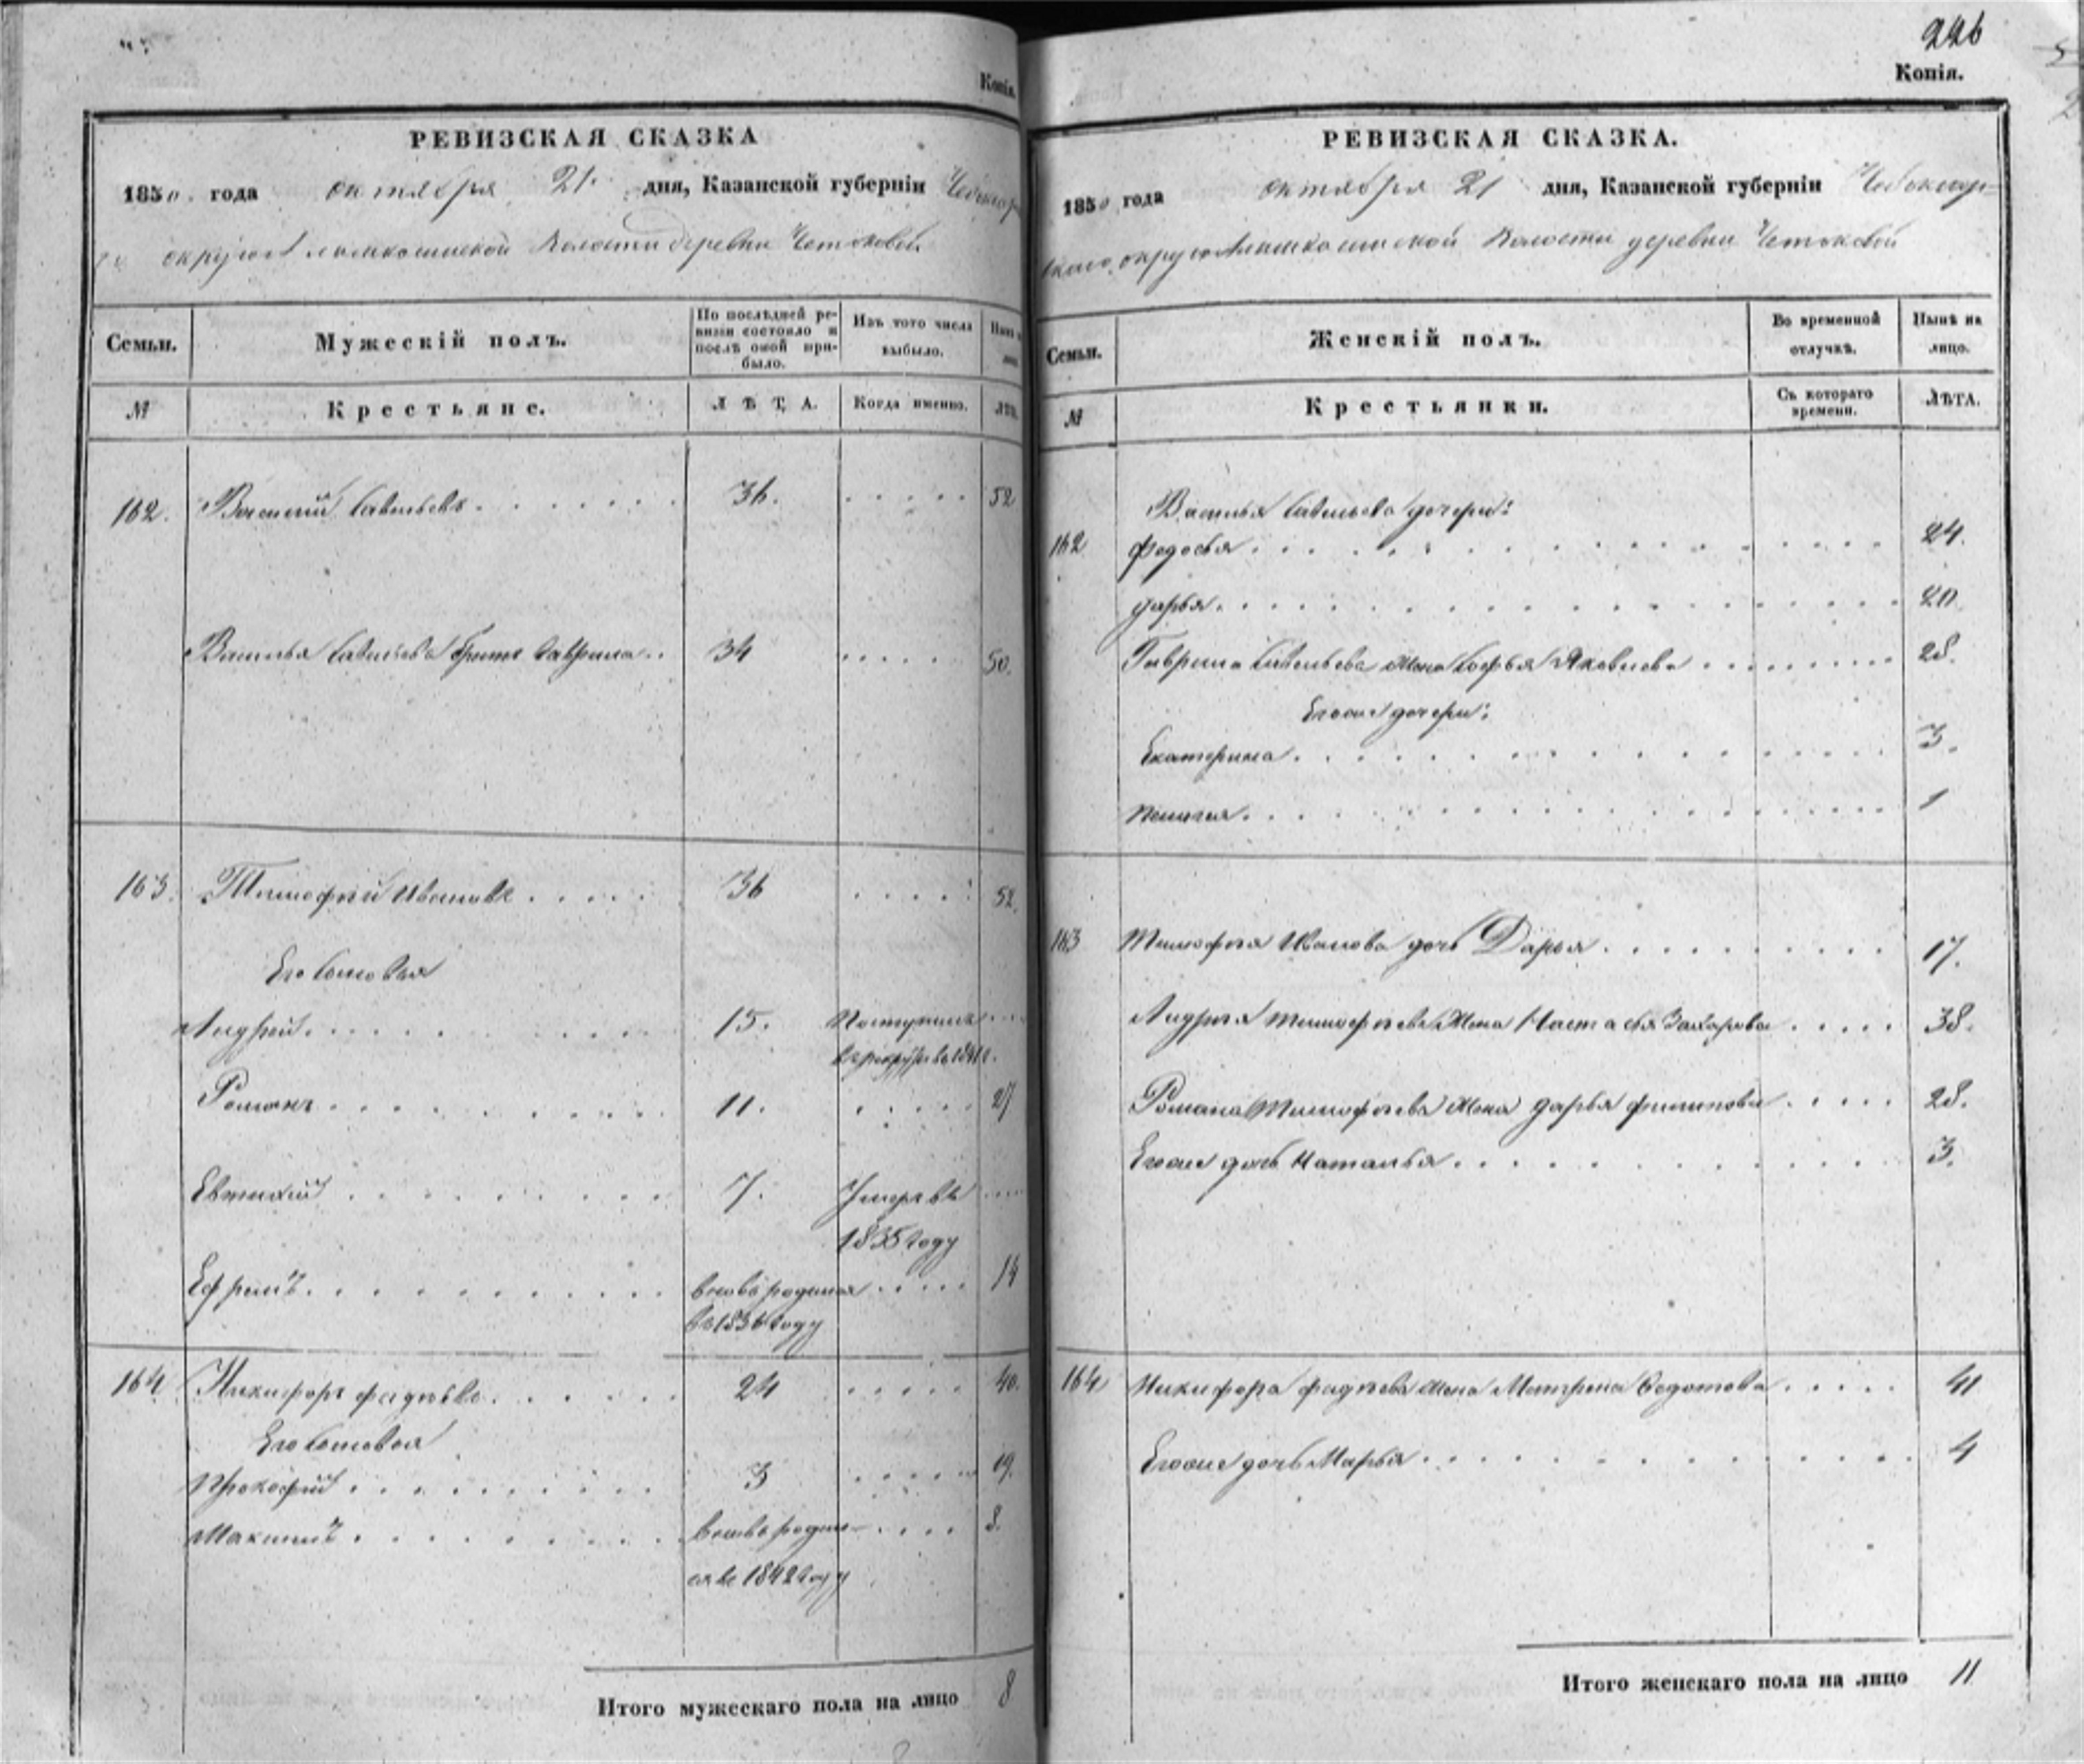 Копія.
РЕВИЗСКАЯ СКАЗКА
1850 года октября 21 дня, Казанской губерніи Чебоксар
округа волости деревни
Семьи. Мужескій полъ. По послѣдней ревизіи состояло и послѣ оной прибыло. Изъ того числа выбыло. Нынѣ
№ Крестьяне. ЛѢТА. Когда именно. ЛѢТ
162. Василий Савельевъ 36. 52
Василья Савельева братъ Гаврила 34 50.
163. Тимофей Ивановъ 36 52.
Его сыновья
Андрей 15. Поступилъ
в рекруты в
Романъ 11. 27
Евтихий 7. Умеръ въ
1835 году
Ефремъ вновь родился 14
въ 1836 году
164 Никифоръ Фадѣевъ 24 40.
Его сыновья
Прокофий 3 19.
Максимъ вновь родил 8.
ся въ 1842 году
Итого мужескаго пола на лицо 8
226
Копія.
РЕВИЗСКАЯ СКАЗКА.
1850 года октября 21 дня, Казанской губерніи Чебоксар-
скаго округа волости деревни
Семьи. Женскій полъ. Во временной отлучкѣ. Нынѣ на лицо.
№ Крестьянки. Съ котораго времени. ЛѢТА.
Василья Савельева дочери:
162 Федосья 24.
Дарья 20
Гаврила Савельева жена Софья Яковлева 28.
Его дочери:
Екатерина 3.
Пелагея 1
163 Тимофея Иванова дочь Дарья 17.
Андрея Тимофеева жена Настасья Захарова 38.
Романа Тимофеева жена Дарья Филипова 28.
Его дочь Наталья 3.
164 Никифора Фадѣева жена Матрена Федотова 41
Его дочь Марья 4
Итого женскаго пола на лицо 11